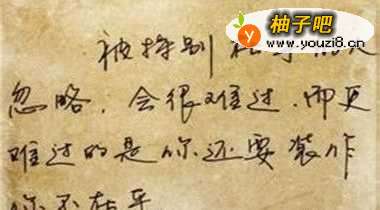 柚子吧
www.youzi8.cn
被特别
忽略，会很难过，而更
难过的是你还要装作
你不在乎